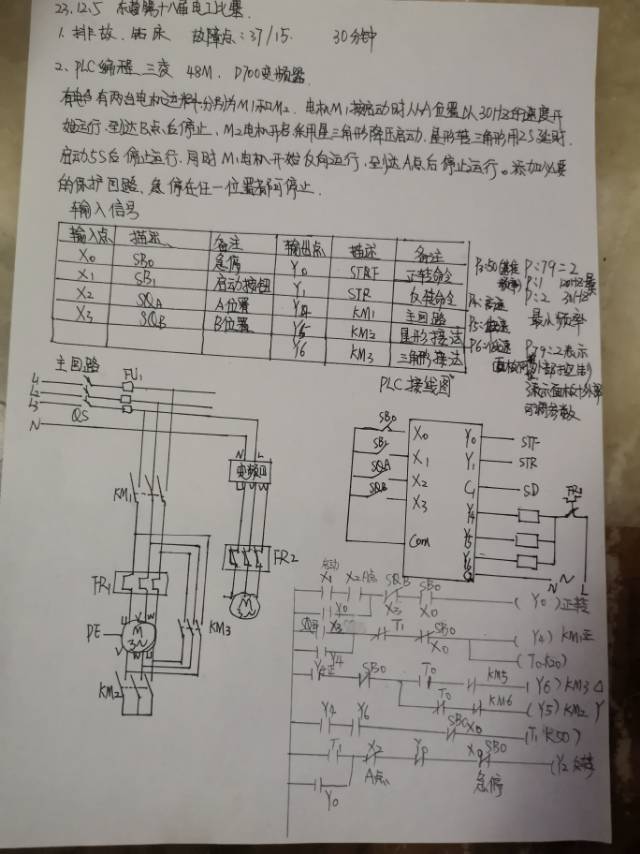 23.12.5 东营第十八届电工比赛.
1. 排故. 钻床 故障点:37/15. 30分钟
2. PLC编程. 三菱 48M. D700变频器.
有两台电机 分别为M1和M2. 电机M1按启动时从A位置以30Hz的速度开
始运行.到达B点后停止. M2电机开始采用星三角形降压启动.星形转三角形用2S延时.
启动5S后停止运行.同时M1电机开始反向运行.到达A点后停止运行。添加必要
的保护回路、急停在任一位置都可停止.
输入信号
输入点 描述 备注 输出点 描述 备注
X0 SB0 急停 Y0 STRF 正转命令
X1 SB1 启动按钮 Y1 STR 反转命令
X2 SQA A位置 Y4 KM1 主回路
X3 SQB B位置 Y5 KM2 星形接法
Y6 KM3 三角形接法
P:79=2
P:1
P:2 30Hz
最小频率
P79=2表示
可调参数
主回路
L1
L2
L3
N
QS
FU1
KM1
FR1
PE
U V W
M
3~
KM2
KM3
N L
变频器
U V W
FR2
M
PLC接线图
SB0 X0 Y0 STF
SB1 X1 Y1 STR
SQA X2 C1 SD
SQB X3 Y4
Y5
Com Y6
N L
启动
X1 X2 A点 SQB X3 SB0 X0 (Y0)正转
Y0
X3 T1 SB0 X0 (Y4)KM1主
Y4 (T0 K20)
SB0 T0 KM5 (Y6)KM3 △
T0 KM6 (Y5)KM2 Y
Y4 Y6 SB0 X0 (T1 K50)
T1 X2 A点 Y0 X0 SB0 急停 (Y2 反转
Y0